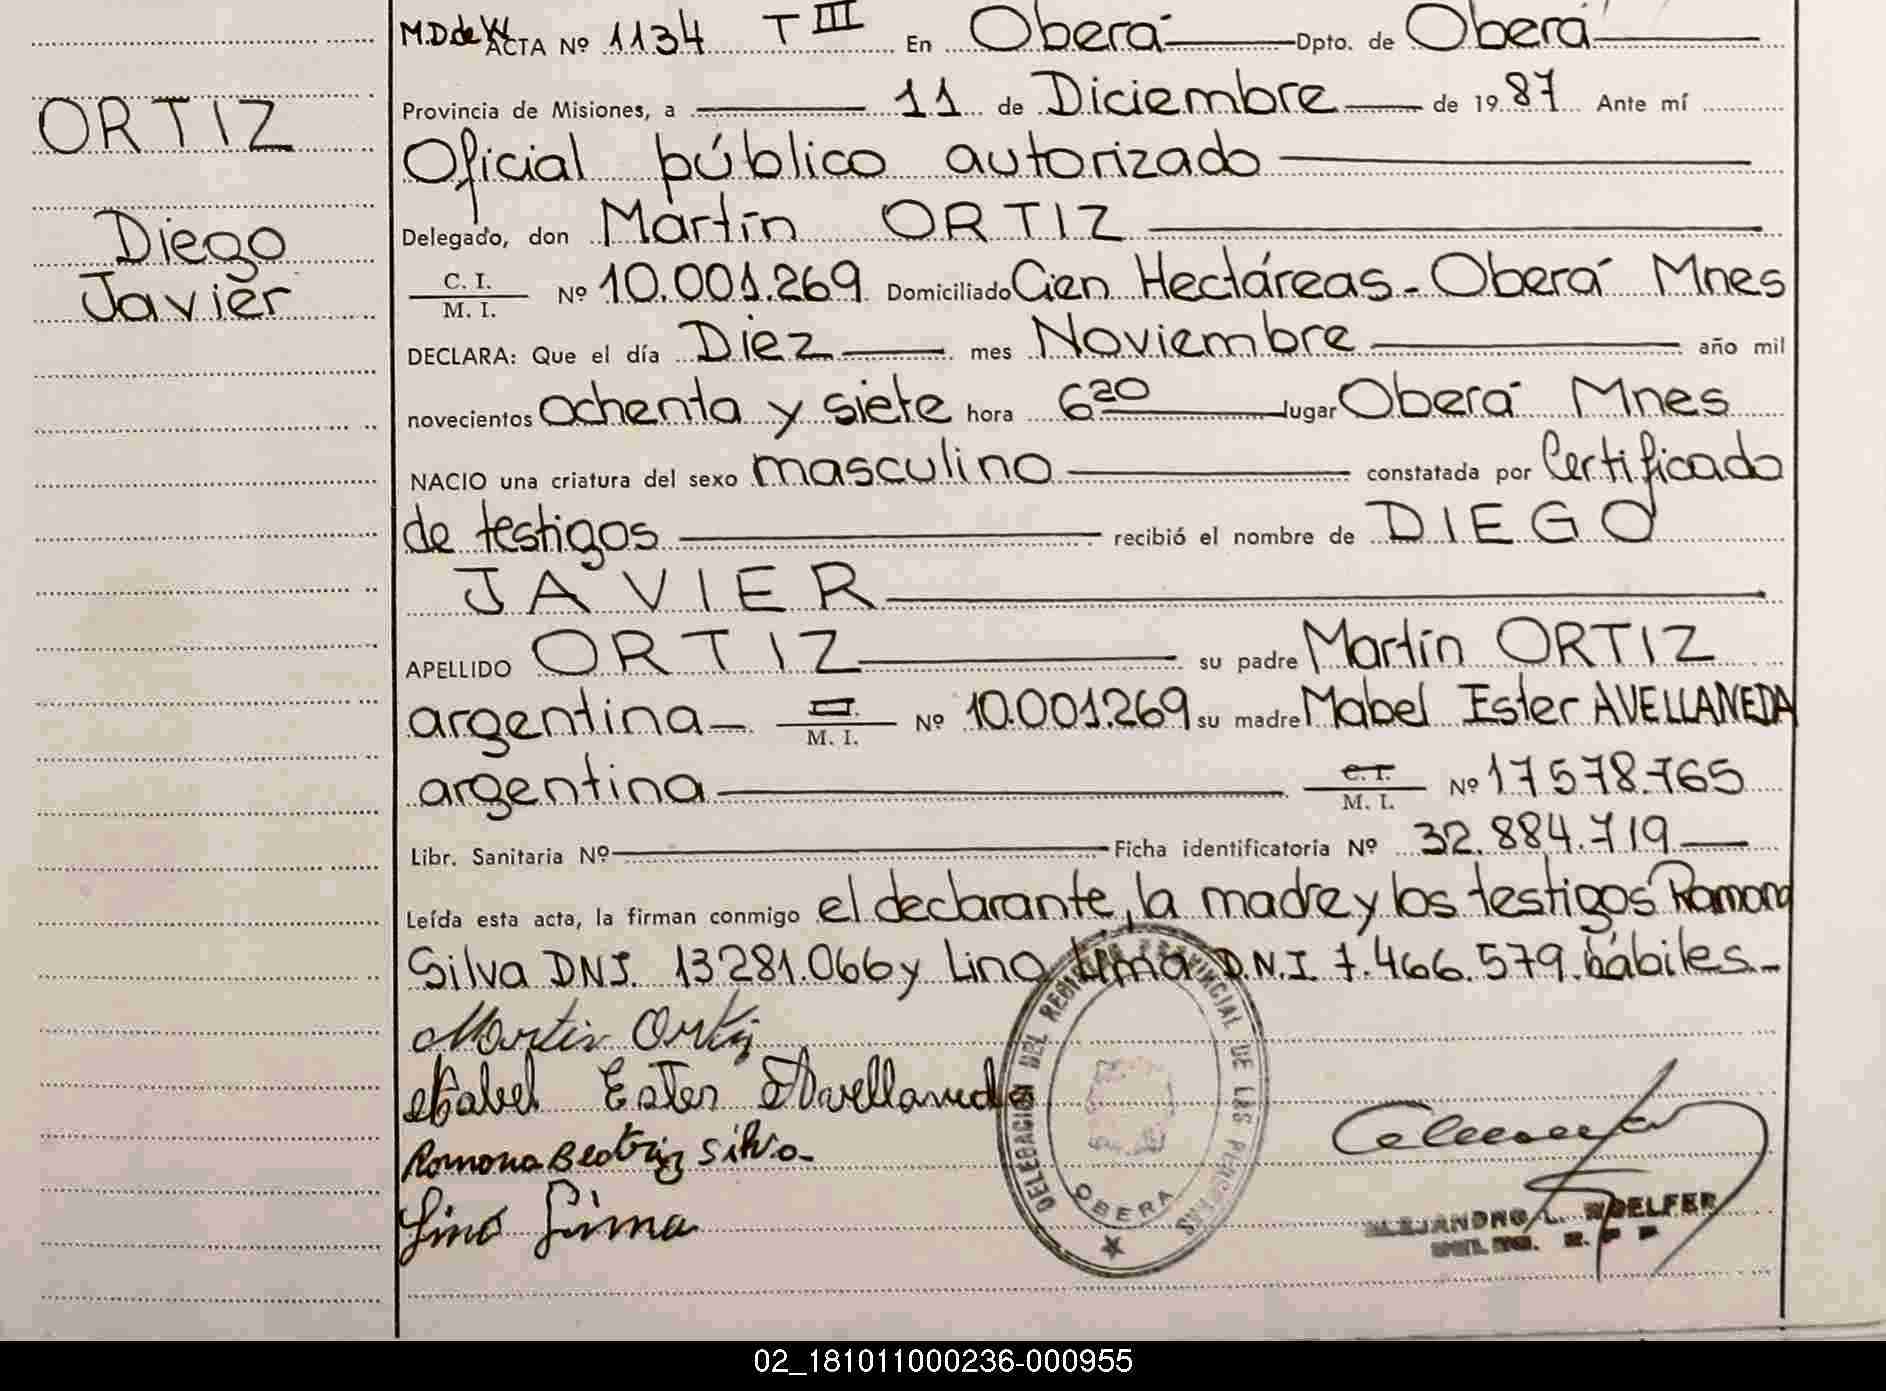 M.D.de W. ACTA Nº 1134 T III En Oberá Dpto. de Oberá
Provincia de Misiones, a 11 de Diciembre de 1987 Ante mí
ORTIZ
Oficial público autorizado
Diego
Delegado, don Martín ORTIZ
Javier
C. I.
M. I. Nº 10.001.269 Domiciliado Cien Hectáreas - Oberá Mnes
DECLARA: Que el día Diez mes Noviembre año mil
novecientos ochenta y siete hora 6 20 lugar Oberá Mnes
NACIO una criatura del sexo masculino constatada por Certificado
de testigos recibió el nombre de DIEGO
JAVIER
APELLIDO ORTIZ su padre Martín ORTIZ
argentina C. I. M. I. Nº 10.001.269 su madre Mabel Ester AVELLANEDA
argentina C. I. M. I. Nº 17578.765
Libr. Sanitaria Nº Ficha identificatoria Nº 32.884.719
Leída esta acta, la firman conmigo el declarante, la madre y los testigos Ramona
Silva DNI. 13281.066 y Lino Lima D.N.I 7.466.579. hábiles.-
Martin Ortiz
Mabel Ester Avellaneda
Romona Beatriz Silva.
Lino Lima
DELEGACION DEL REGISTRO PROVINCIAL DE LAS PERSONAS
OBERA
ALEJANDRO L. WOELFER
02_181011000236-000955